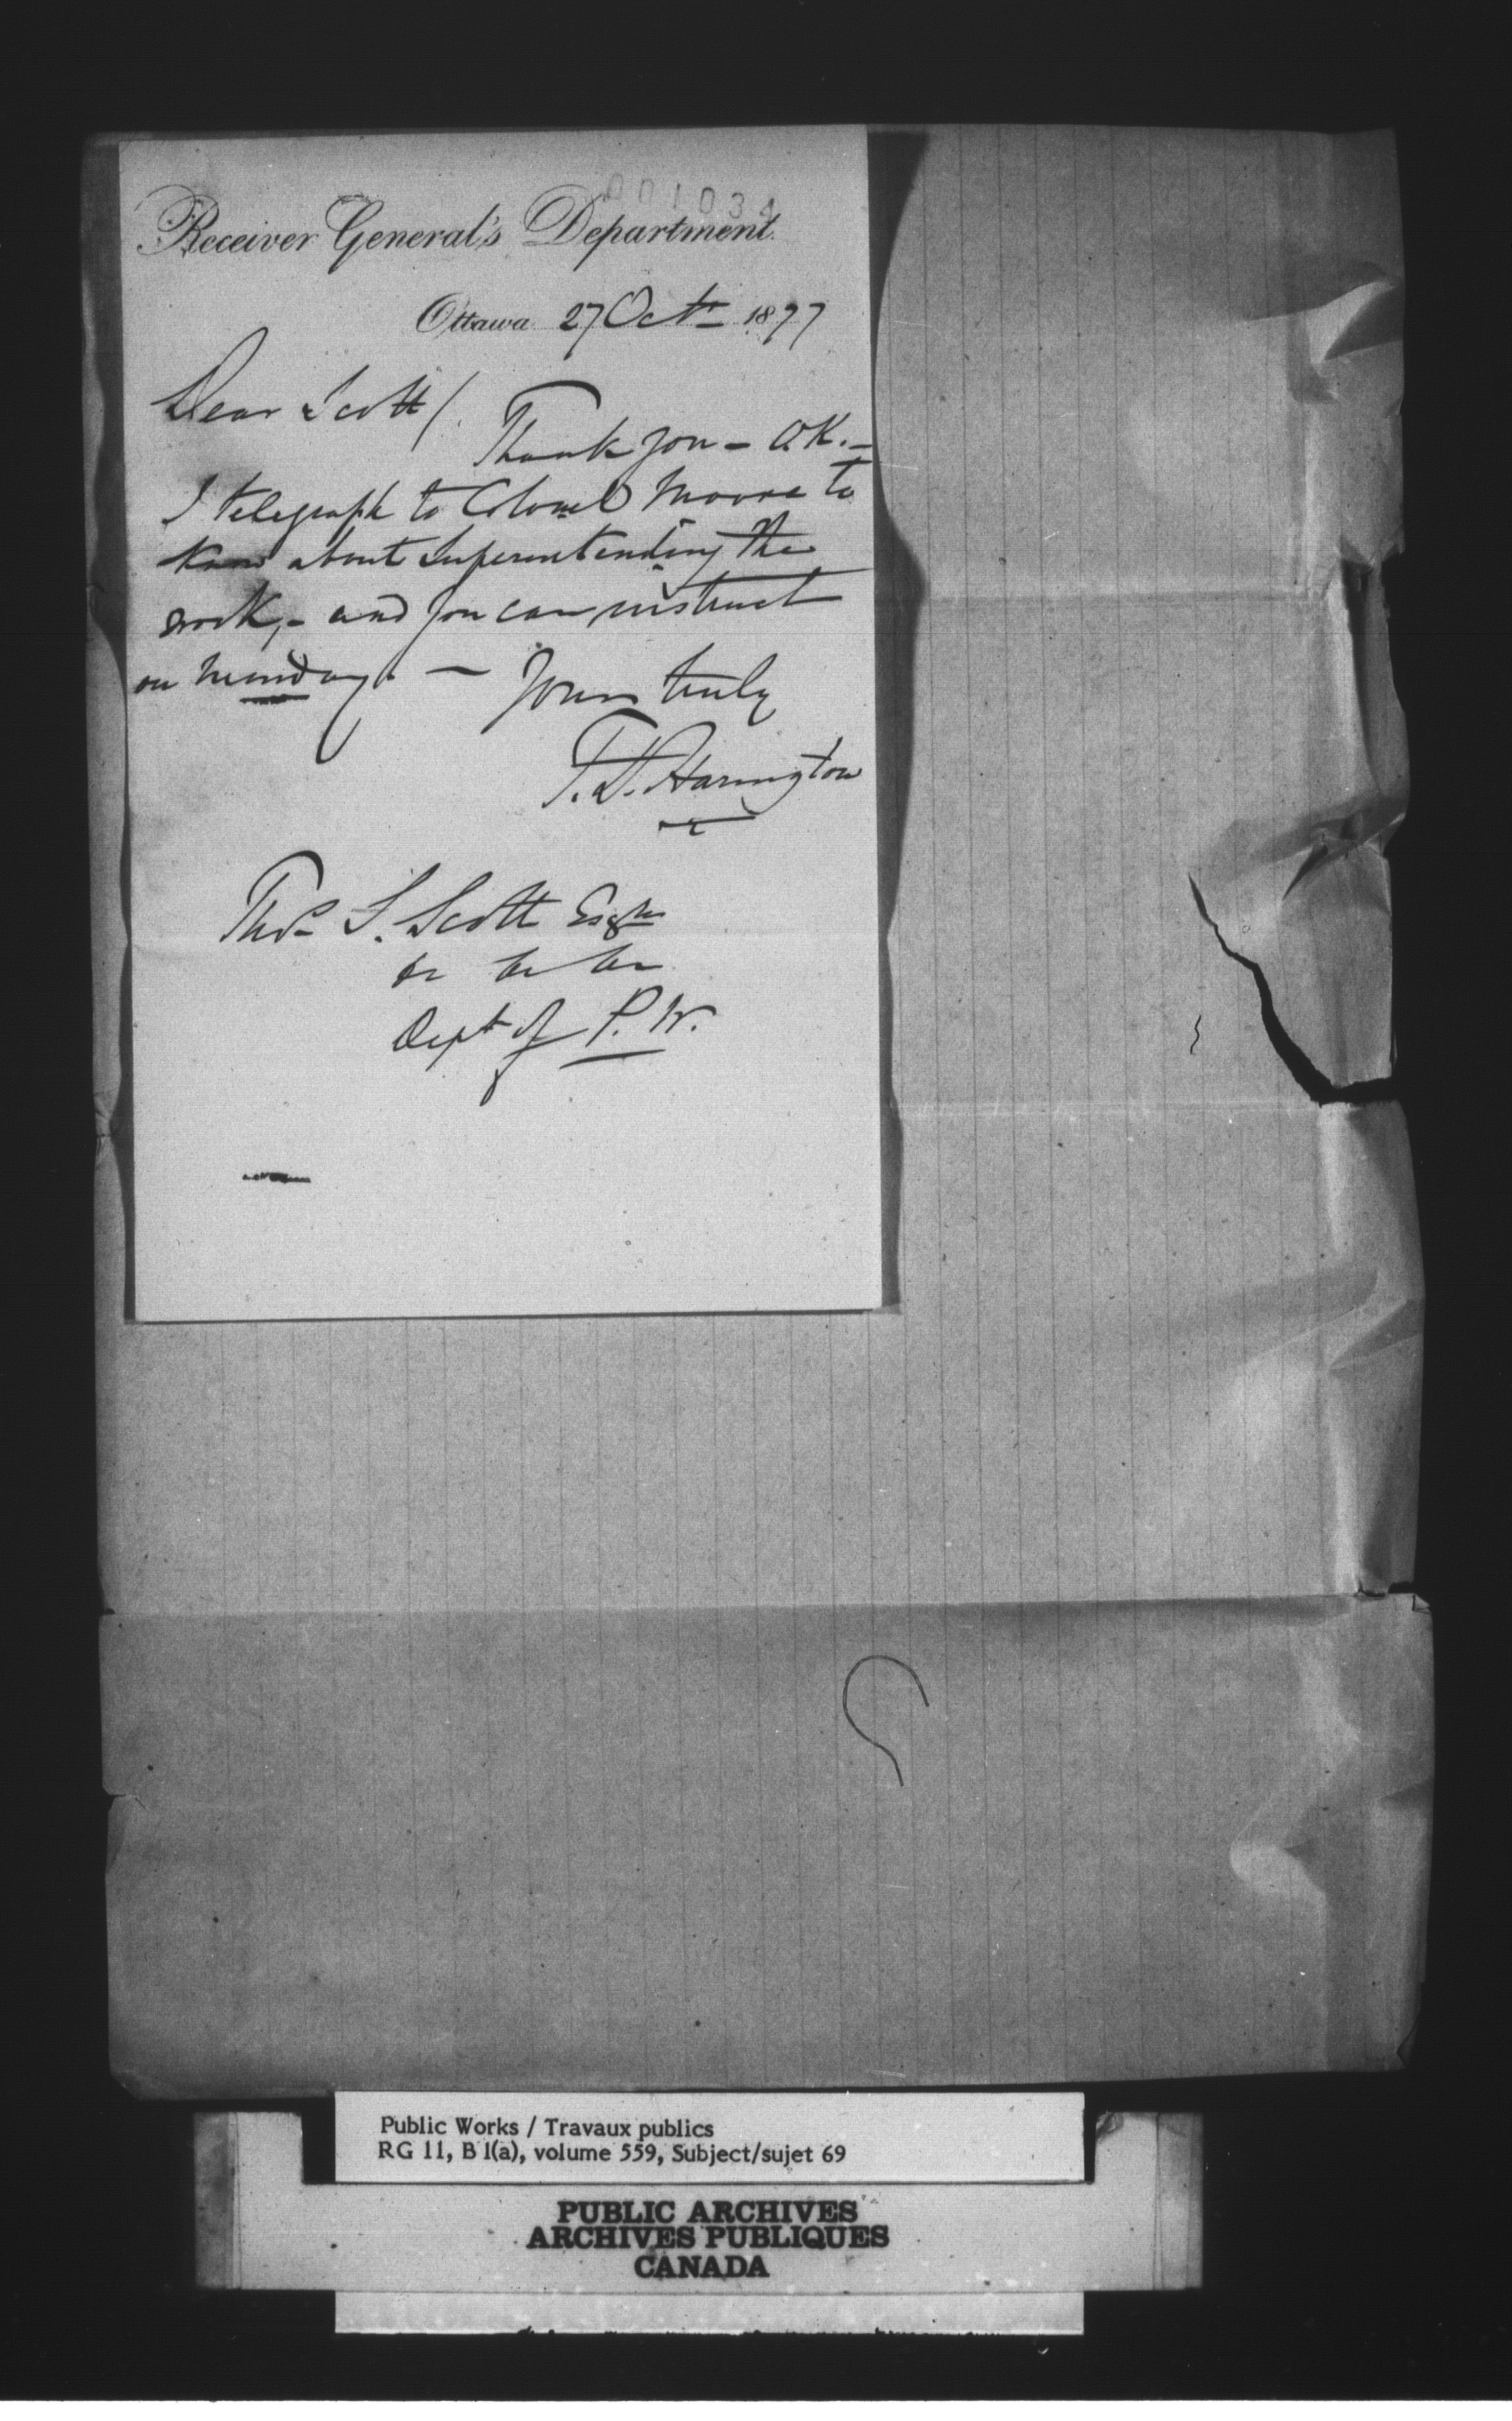 001034
Receiver General's Department.
Ottawa 27 Octr 1877
Dear Scott/
Thank you – O.K. –
I telegraph to Colonel Moore to
know about Superintending the
work, – and you can instruct
on Monday. –
Yours truly
T. D. Harington
Thos S. Scott Esqre
&c &c &c
Dept of P. W.
Public Works / Travaux publics
RG 11, B 1(a), volume 559, Subject/sujet 69
PUBLIC ARCHIVES
ARCHIVES PUBLIQUES
CANADA